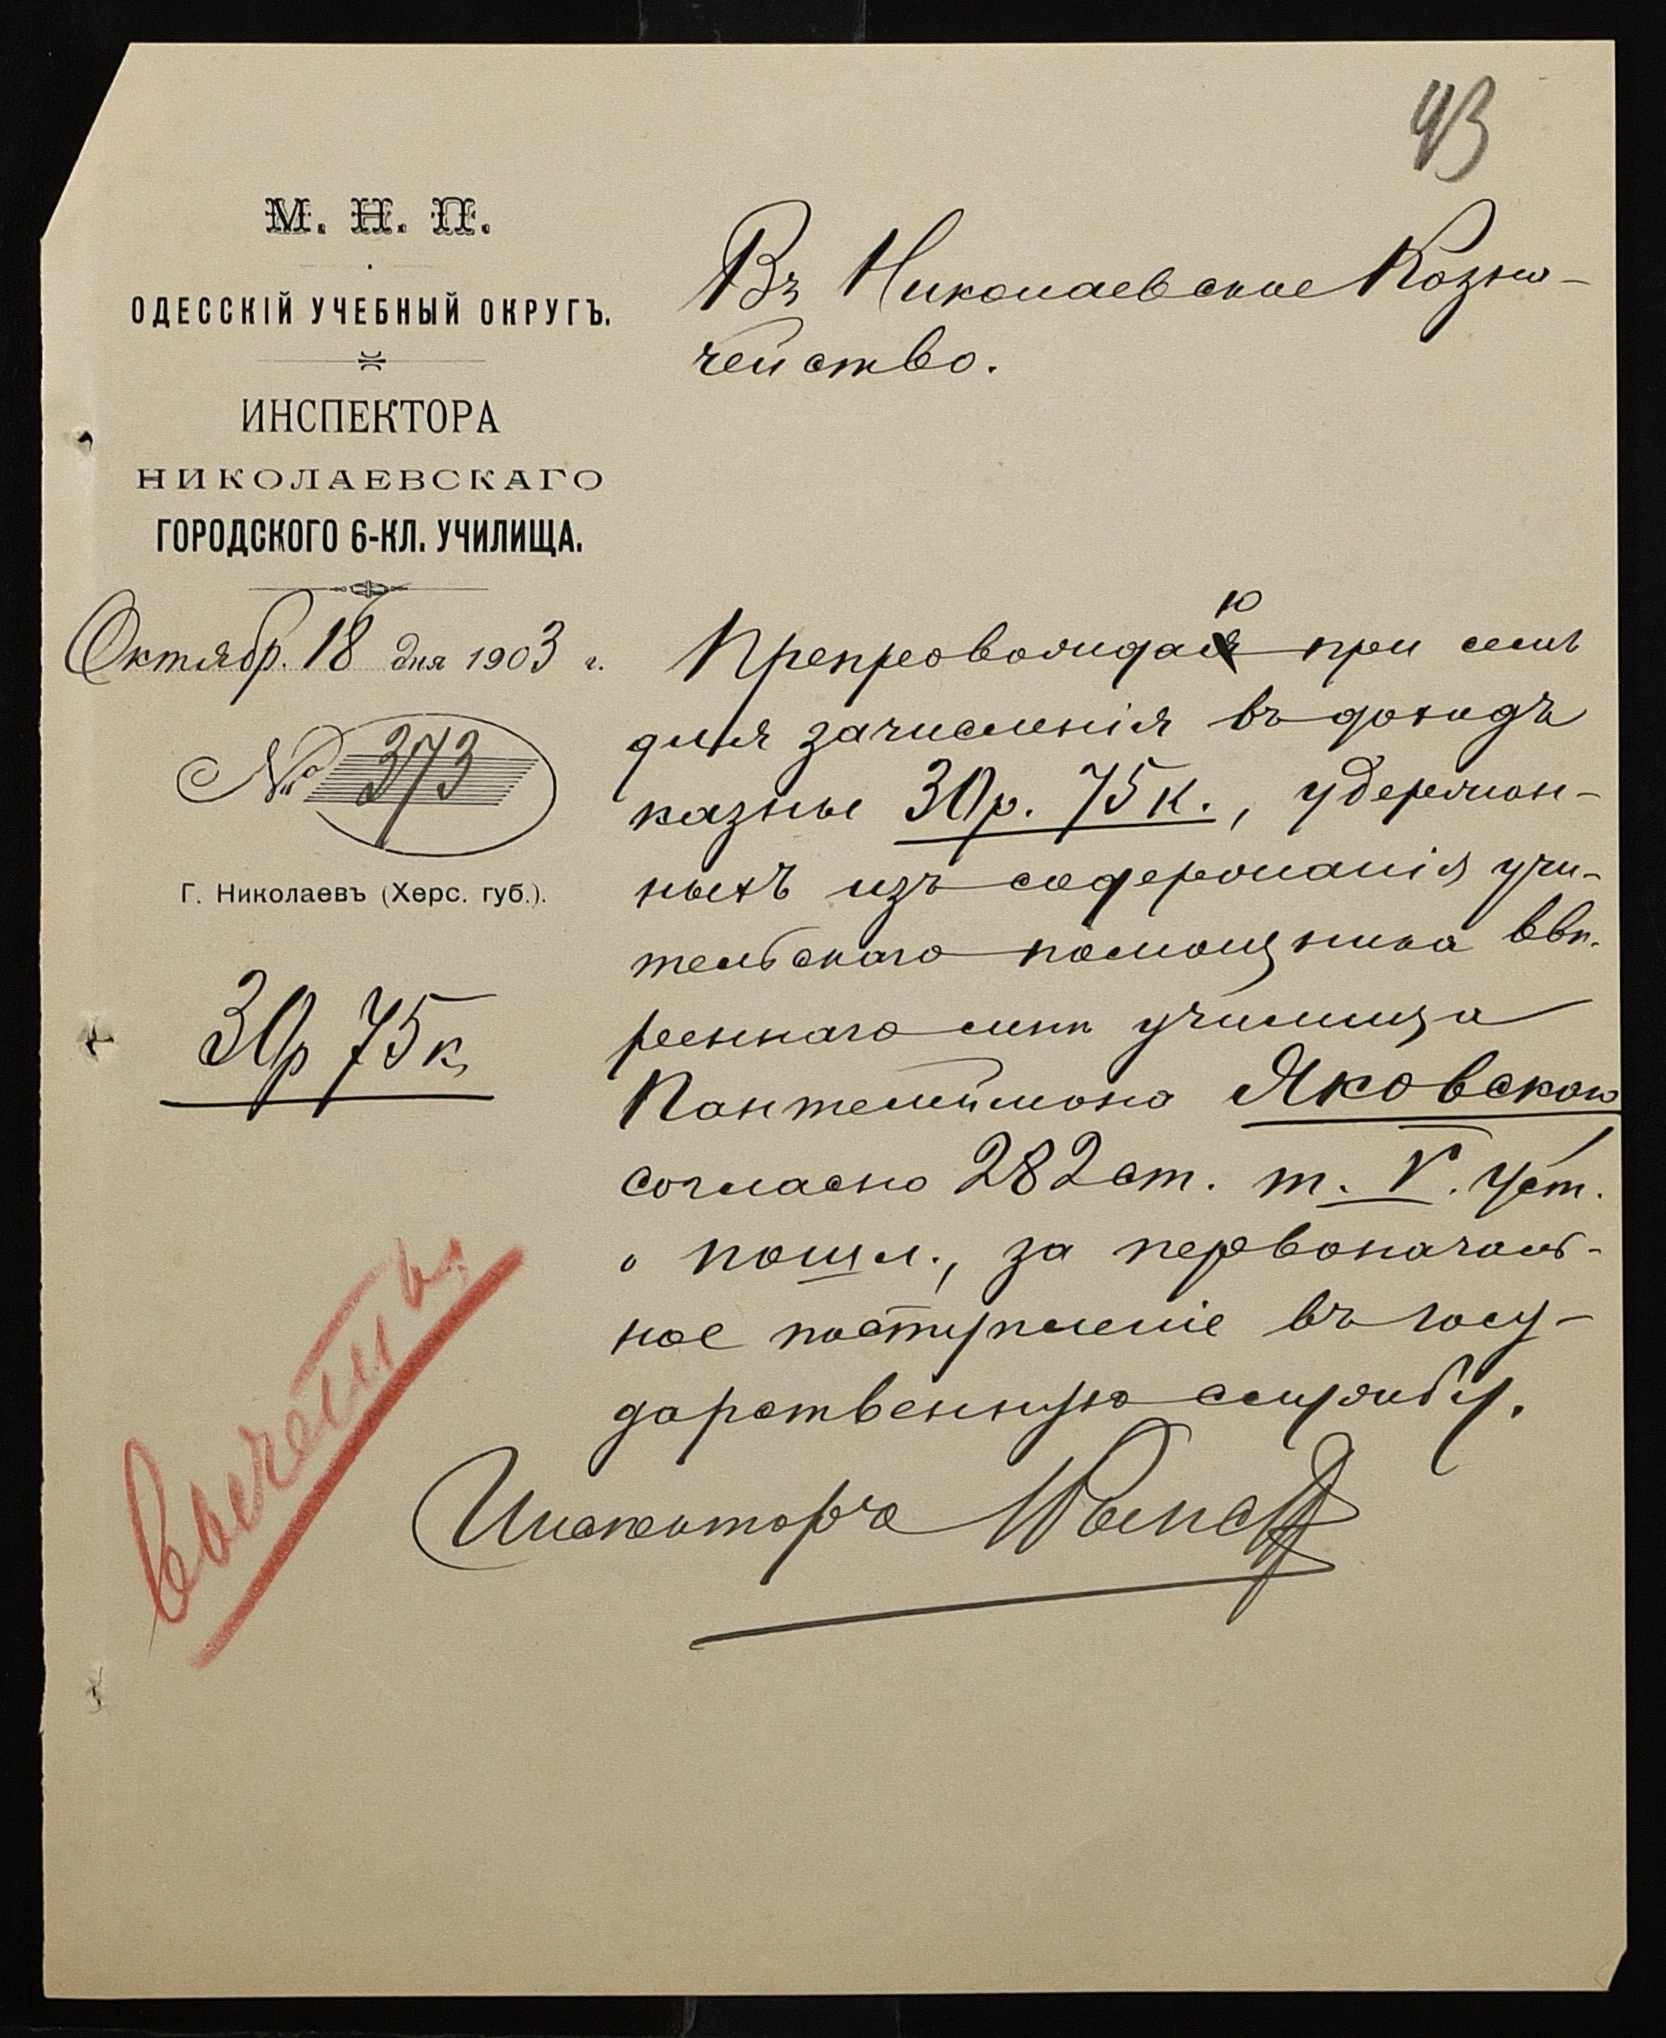 43
М. Н. П.
ОДЕССКІЙ УЧЕБНЫЙ ОКРУГЪ.
ИНСПЕКТОРА
НИКОЛАЕВСКАГО
ГОРОДСКОГО 6-КЛ. УЧИЛИЩА.
Октябр. 18 дня 1903 г.
№ 373
Г. Николаевъ (Херс. губ.).
30р 75к
Вычеты
Въ Николаевское Казна-
чейство.
Препровождаю при семъ
для зачисленія въ доходъ
казны 30р. 75к., удержан-
ныхъ изъ содержанія учи-
тельскаго помощника ввѣ-
реннаго мнѣ училища
Пантелеймона Яковскаго
согласно 282 ст. т. V. Уст.
о пошл., за первоначаль-
ное поступленіе въ госу-
дарственную службу.
Инспекторъ